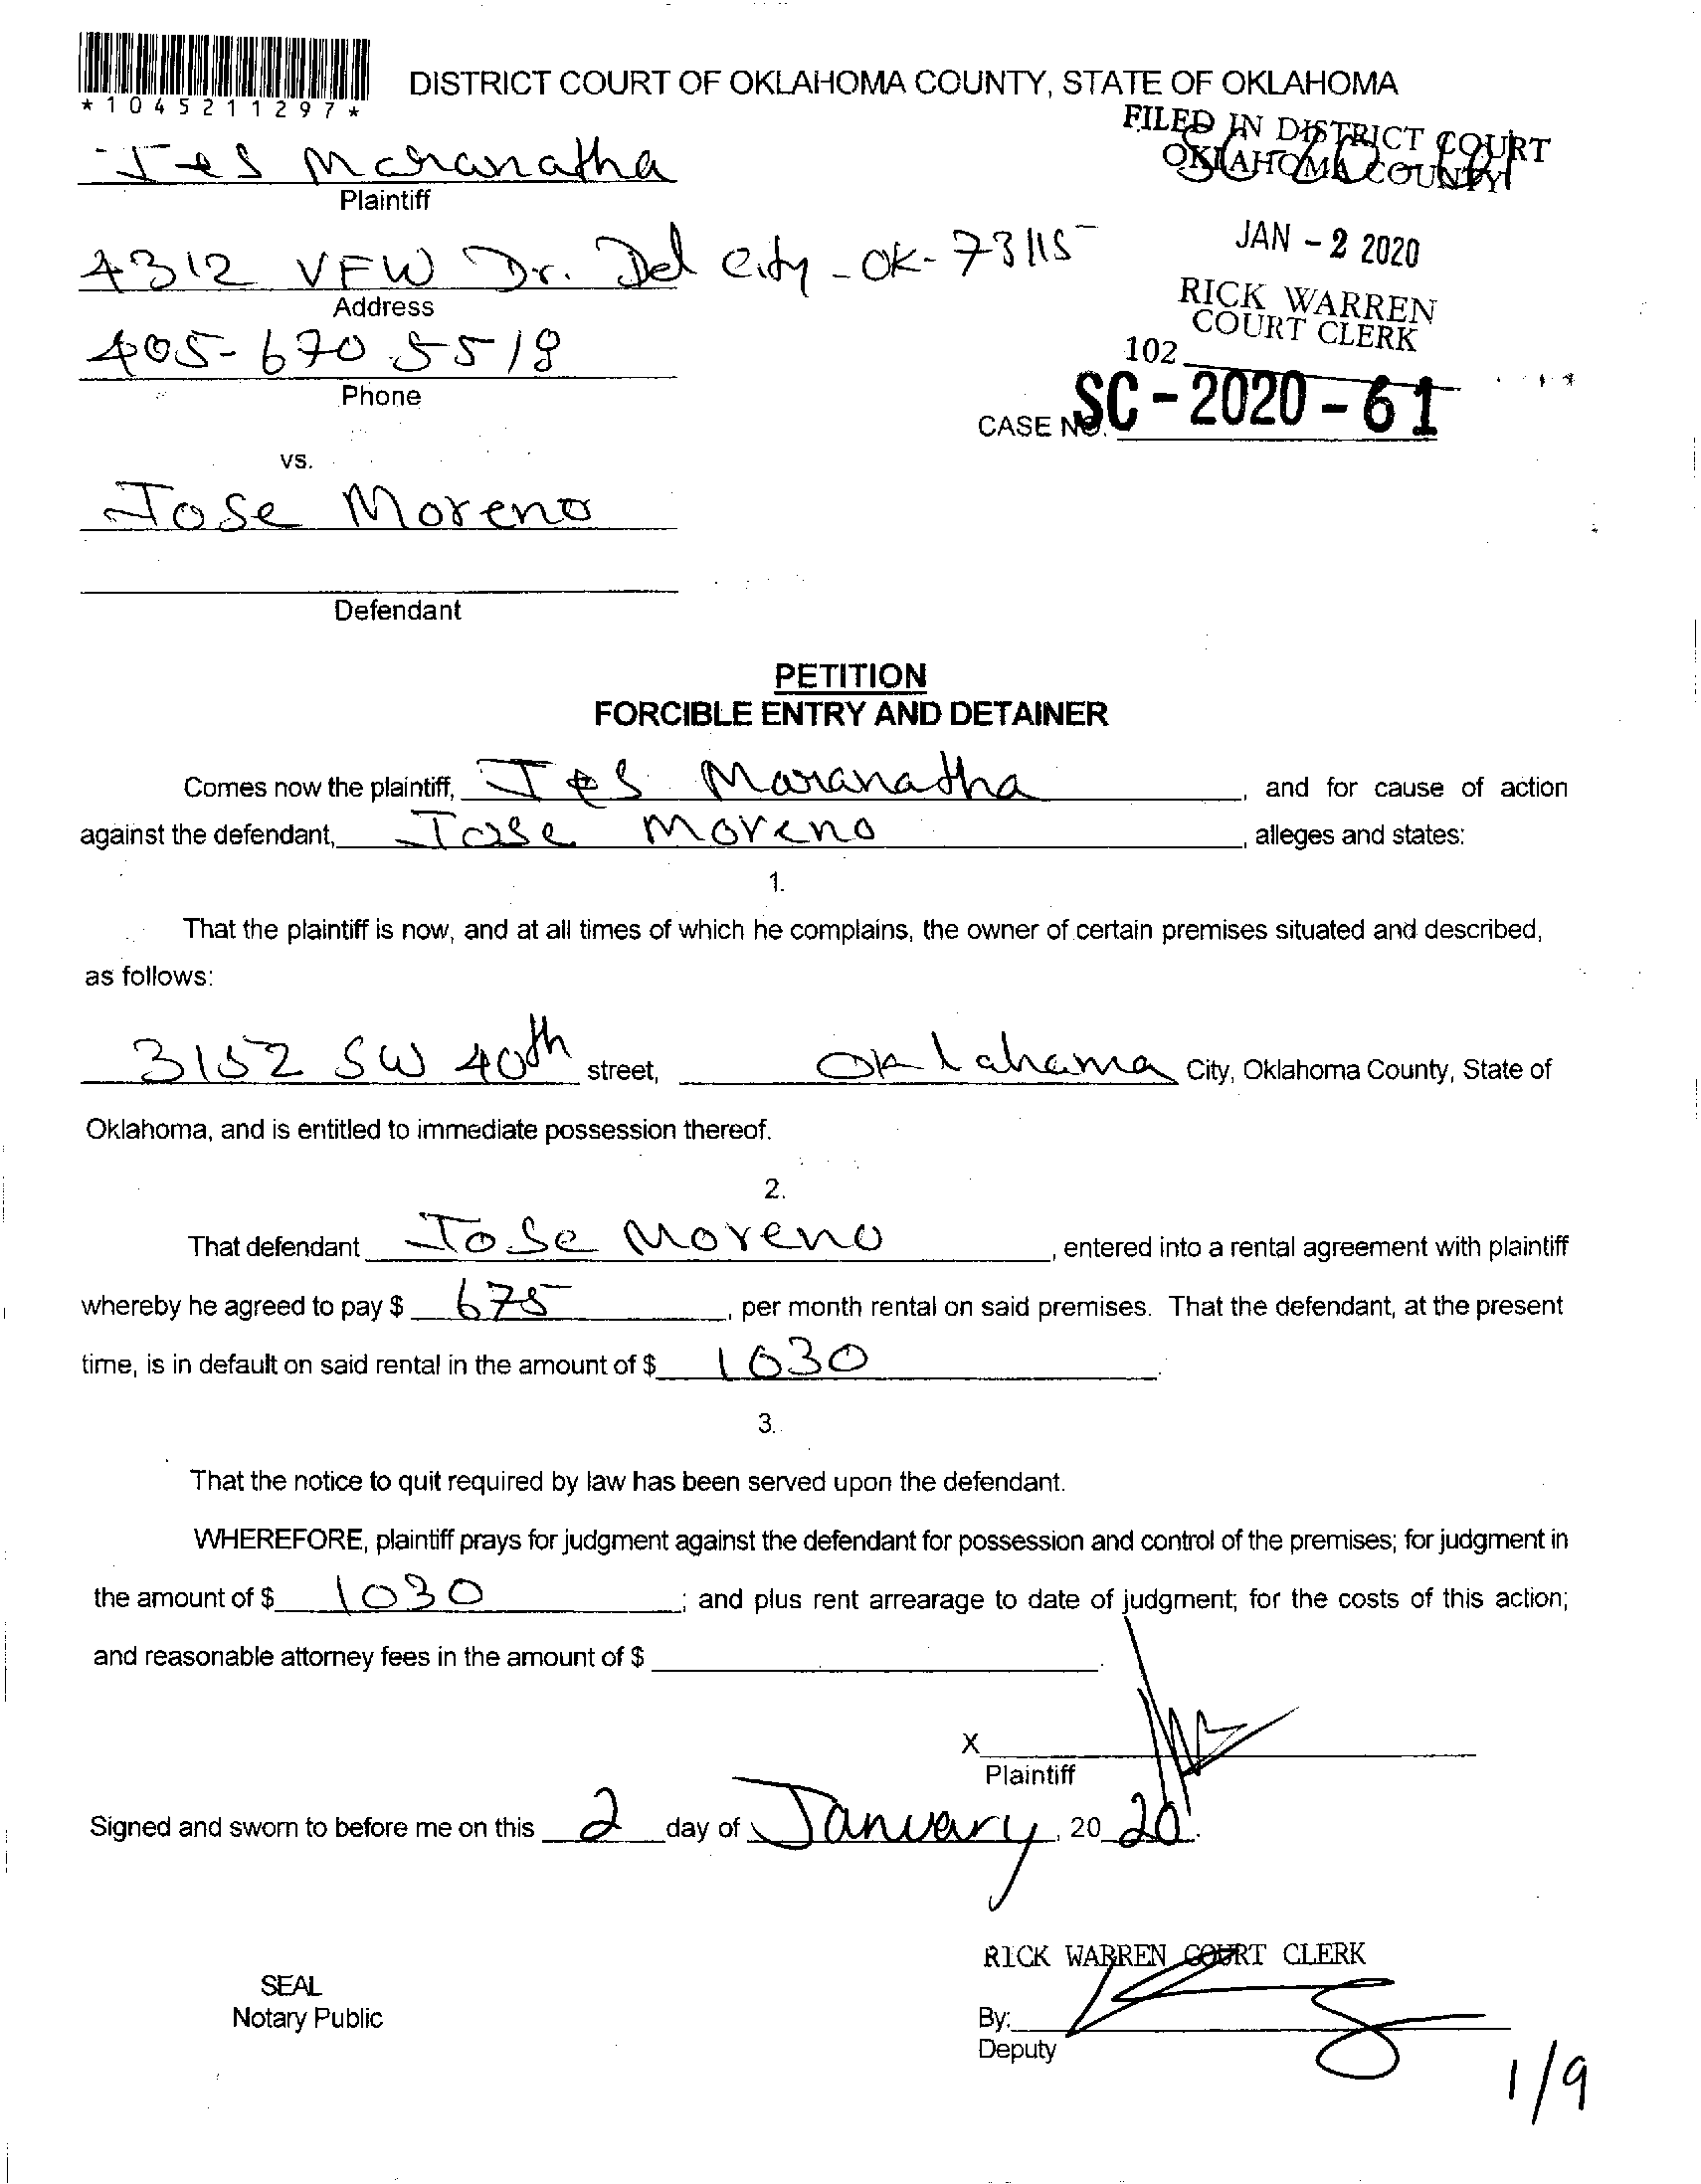 *1045211297*
DISTRICT COURT OF OKLAHOMA COUNTY, STATE OF OKLAHOMA
FILED IN DISTRICT COURT
OKLAHOMA COUNTY
Jes Maranatha
Plaintiff
JAN - 2 2020
4312 VFW Dr. Del city - OK - 73115
Address
RICK WARREN
COURT CLERK
405-670 5518
102
Phone
CASE NO. SC - 2020 - 61
vs.
Jose Moreno
Defendant
PETITION
FORCIBLE ENTRY AND DETAINER
Comes now the plaintiff, Jes Maranatha, and for cause of action
against the defendant, Jose Moreno, alleges and states:
1.
That the plaintiff is now, and at all times of which he complains, the owner of certain premises situated and described,
as follows:
3152 SW 40th street, Oklahoma City, Oklahoma County, State of
Oklahoma, and is entitled to immediate possession thereof.
2.
That defendant Jose Moreno, entered into a rental agreement with plaintiff
whereby he agreed to pay $ 675, per month rental on said premises. That the defendant, at the present
time, is in default on said rental in the amount of $ 1030.
3.
That the notice to quit required by law has been served upon the defendant.
WHEREFORE, plaintiff prays for judgment against the defendant for possession and control of the premises; for judgment in
the amount of $ 1030; and plus rent arrearage to date of judgment; for the costs of this action;
and reasonable attorney fees in the amount of $ .
X
Plaintiff
Signed and sworn to before me on this 2 day of January, 20 20.
RICK WARREN COURT CLERK
SEAL
Notary Public
By:
Deputy
1/9